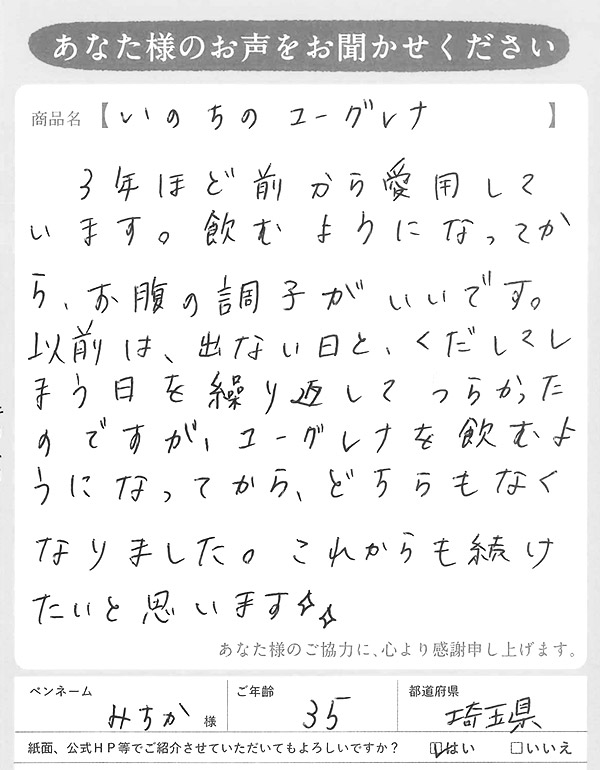 あなた様のお声をお聞かせください
商品名【いのちのユーグレナ】
3年ほど前から愛用して
います。飲むようになってか
ら、お腹の調子がいいです。
以前は、出ない日と、くだしてし
まう日を繰り返してつらかった
のですが、ユーグレナを飲むよ
うになってから、どちらもなく
なりました。これからも続け
たいと思います☆☆
あなた様のご協力に、心より感謝申し上げます。
ペンネーム ご年齢 都道府県
みちか様 35 埼玉県
紙面、公式HP等でご紹介させていただいてもよろしいですか？ ☑はい □いいえ